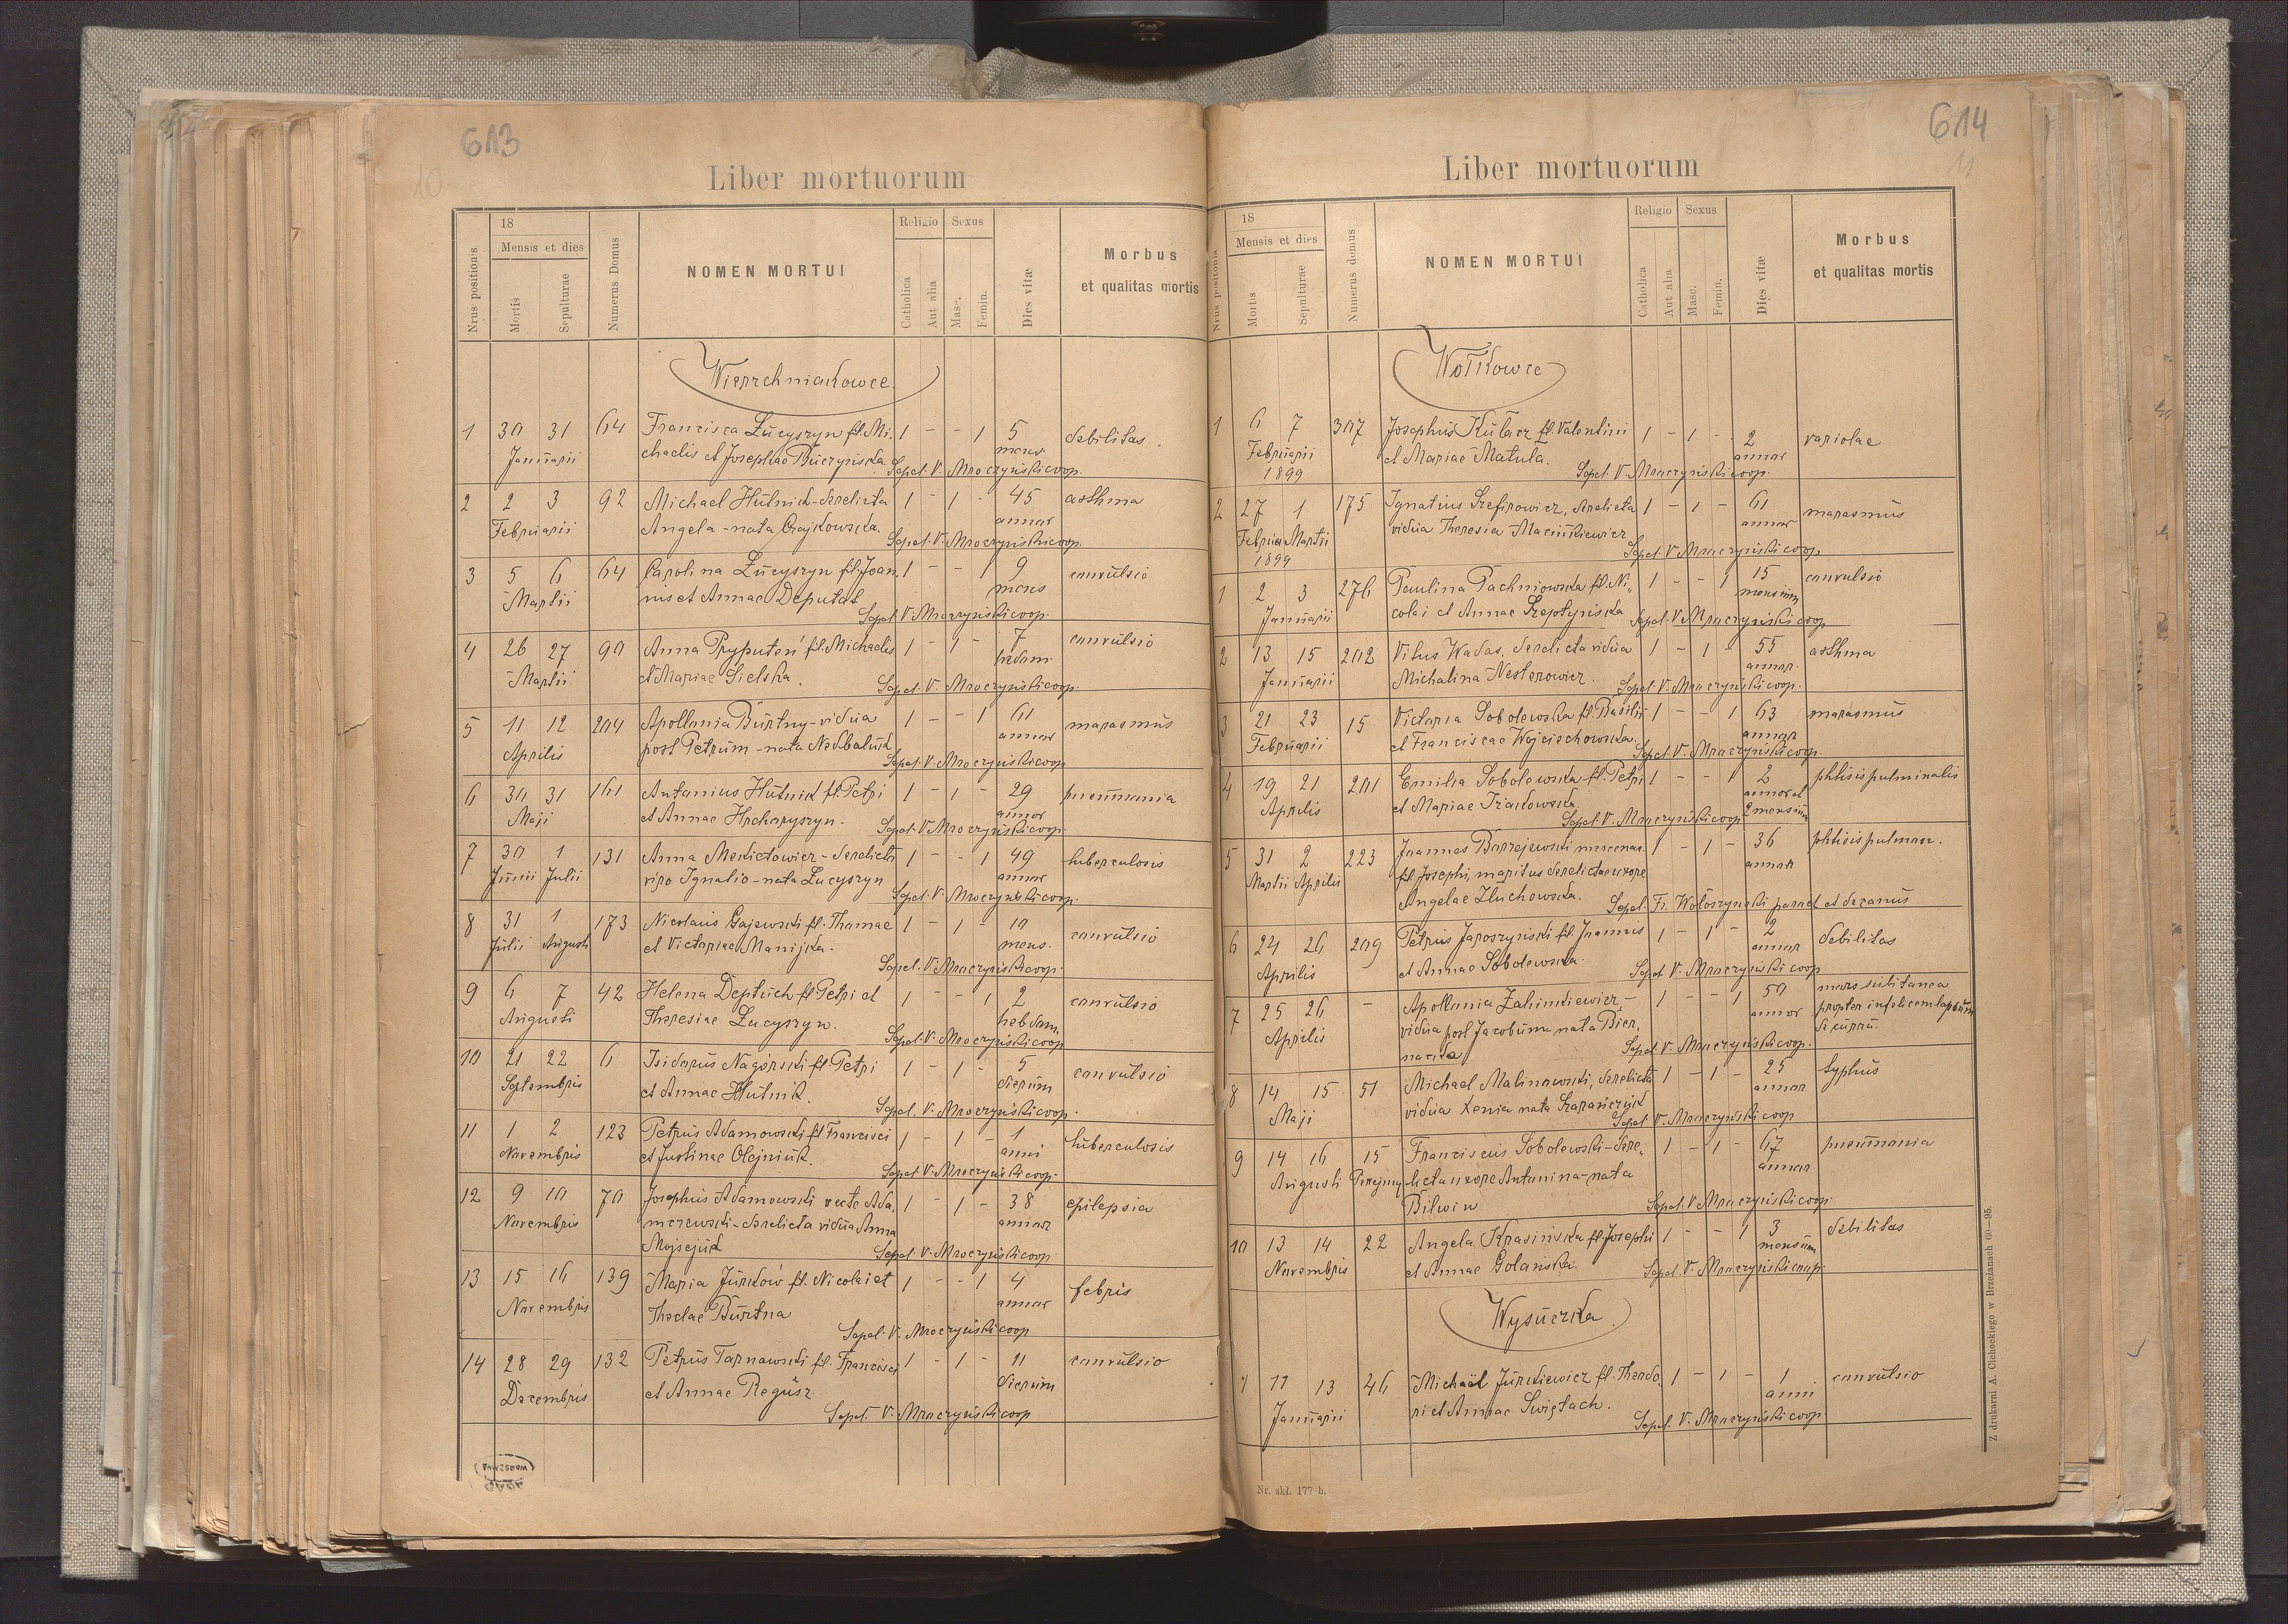 613
10
Liber mortuorum
Nrus positionis
18
Mensis et dies
Mortis
Sepulturae
Numerus Domus
NOMEN MORTUI
Religio
Catholica
Aut alia
Sexus
Masc.
Femin.
Dies vitæ
Morbus
et qualitas mortis
Wierzchniakowce.
1 30 31 64 Francisca Łucyszyn fl. Mi- 1 - - 1 5 debilitas.
Januarii chaelis et Josephae Buczyńska mens
Sepel. V. Mroczyński coop.
2 2 3 92 Michael Hutnik - derelicta 1 - 1 - 45 asthma
Februarii Angela - nata Gajkowska annor
Sepel. V. Mroczyński coop.
3 5 6 64 Carolina Łucyszyn fl. Joan. 1 - - 1 9 convulsio
Martii nis et Annae Deputat mens
Sepel. V. Mroczyński coop.
4 26 27 90 Anna Pryputeń fl. Michaelis 1 - 1 - 7 convulsio
Martii et Mariae Sielska. hebdom.
Sepel. V. Mroczyński coop.
5 11 12 204 Apollonia Burtny - vidua 1 - - 1 61 marasmus
Aprilis post Petrum - nata Nedbaluk annor
Sepel. V. Mroczyński coop
6 30 31 161 Antonius Hutnik fl. Petri 1 - 1 - 29 pneumonia
Maji et Annae Hrcharyszyn. annor
Sepel. V. Mroczyński coop.
7 30 1 131 Anna - derelicto 1 - - 1 49 tuberculosis
Junii Julii viro Ignatio - nata Łucyszyn annor
Sepel. V. Mroczyński coop.
8 31 1 173 Nicolaus Gajewski fl. Thomae 1 - 1 - 10 convulsio
Julii Augusti et Victoriae Manijka. mens.
Sepel. V. Mroczyński coop.
9 6 7 42 Helena Deptuch fl. Petri et 1 - - 1 2 convulsio
Augusti Theresiae Łucyszyn. hebdom.
Sepel. V. Mroczyński coop
10 21 22 6 Isidorus Nagórski fl. Petri 1 - 1 - 5 convulsio
Septembris et Annae Hutnik. dierum
Sepel. V. Mroczyński coop.
11 1 2 123 Petrus Adamowski fl Francisci 1 - 1 - 1 tuberculosis
Novembris et Justinae Olejniuk. anni
Sepel. V. Mroczyński coop.
12 9 10 70 Josephus Adamowski recte Ada- 1 - 1 - 38 epilepsia
Novembris - derelicta vidua Anna annor
Mojsejuk
Sepel. V. Mroczyński coop.
13 15 16 139 Maria Jurków fl. Nicolai et 1 - - 1 4 febris
Novembris Theclae Burtna annor
Sepel. V. Mroczyński coop
14 28 29 132 Petrus Tarnawski fl. Francisci 1 - 1 - 11 convulsio
Decembris et Annae Regusz. dierum
Sepel. V. Mroczyński coop
614
11
Liber mortuorum
Nrus positionis
18
Mensis et dies
Mortis
Sepulturae
Numerus domus
NOMEN MORTUI
Religio
Catholica
Aut alia
Sexus
Masc.
Femin.
Dies vitæ
Morbus
et qualitas mortis
Wołkowce
1 6 7 307 Josephus Kułacz fl. Valentini 1 - 1 - 2 variolae
Februarii et Mariae Matula. annor
1899 Sepel. V. Mroczyński coop.
2 27 1 175 Ignatius Szefirowicz, derelicta 1 - 1 - 61 marasmus
Februar Martii vidua Theresia Maciukiewicz annor
1899 Sepel. V. Mroczyński coop.
1 2 3 276 Paulina Pachniowska fl. Ni- 1 - - 1 15 convulsio
Januarii colai et Annae Szeptyńska mensium
Sepel. V. Mroczyński coop
2 13 15 202 Vitus Wadas, derelicta vidua 1 - 1 - 55 asthma
Januarii Michalina Nesterowicz. annor.
Sepel. V. Mroczyński coop.
3 21 23 15 Victoria Sobolewska fl. Basilii 1 - - 1 63 marasmus
Februarii et Franciscae Wojciechowska. annor
Sepel. V. Mroczyński coop.
4 19 21 201 Emilia Sobolewska fl. Petri 1 - - 1 2 phtisis pulminalis
Aprilis et Mariae annor et
Sepel. V. Mroczyński coop 2 mensium
5 31 2 223 Joannes mercenar. 1 - 1 - 36 phtisis pulmon.
Martii Aprilis fl. Josephi, maritus derelictae uxore annor
Angelae Złuchowska.
Sepel. Fr. Wołoszyński paroch et decanus
6 24 26 209 Petrus Jaroszyński fl. Joannis 1 - 1 - 2 debilitas
Aprilis et Annae Sobolewska. annor
Sepel. V. Mroczyński coop
7 25 26 - Apollonia Zahimkiewicz - 1 - - 1 50 mors subitanea
Aprilis vidua post Jacobum nata Bier- annor propter infelicem lapsum
nacka de curru.
Sepel. V. Mroczyński coop.
8 14 15 51 Michael Malinowski, derelicta 1 - 1 - 25 typhus
Maji vidua Xenia nata annor
Sepel. V. Mroczyński coop
9 14 16 15 Franciscus Sobolewski - dere- 1 - 1 - 67 pneumonia
Augusti licta uxore Antonina - nata annor
Bilwin
Sepel. V. Mroczyński coop.
10 13 14 22 Angela Krasińska fl. Josephi 1 - - 1 3 debilitas
Novembris et Annae Golańska. mensium
Sepel. V. Mroczyński coop.
Wysuczka.
1 11 13 46 Michaël Jurkiewicz fl. Theodo- 1 - 1 - 1 convulsio
Januarii ri et Annae Swiętach. anni
Sepel. V. Mroczyński coop.
Nr. skł. 177 b.
Z drukarni A. Cichockiego w Brzeżanach 60—95.